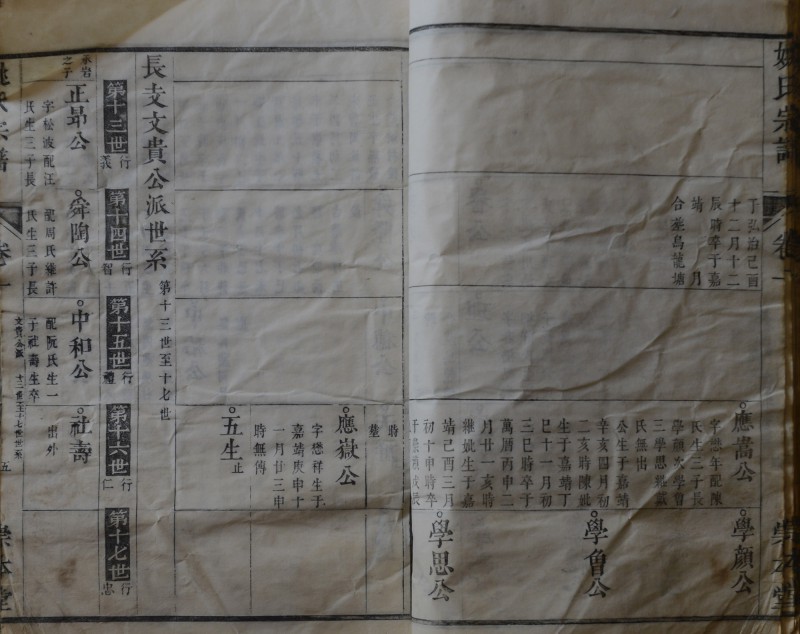 姚氏宗譜
卷一
崇本堂
于弘治己酉
十二月十二
辰時卒于嘉
靖 月
合葬烏龍塘
應嵩公
字懋年配陳
氏生三子長
學顏次學魯
三學思繼戴
氏無出
公生于嘉靖
辛亥四月初
二亥時陳妣
生于嘉靖丁
巳十一月初
三巳時卒于
萬曆丙申二
月廿一亥時
繼妣生于嘉
靖己酉三月
初十申時卒
學顏公
學魯公
學思公
時
應嶽公
字懋祥生于
嘉靖庚申十
一月廿三申
時無傳
五生
止
長支文貴公派世系
第十三世至十七世
第十三世
行義
第十四世
行智
第十五世
行禮
第十六世
行仁
第十七世
行忠
之子
正昂公
字松波配汪
氏生三子長
舜陶公
配周氏繼許
氏生三子長
中和公
配阮氏生一
子社壽生卒
社壽
出外
姚氏宗譜
卷一
文貴公派
十三世至十七世世系
五
崇本堂